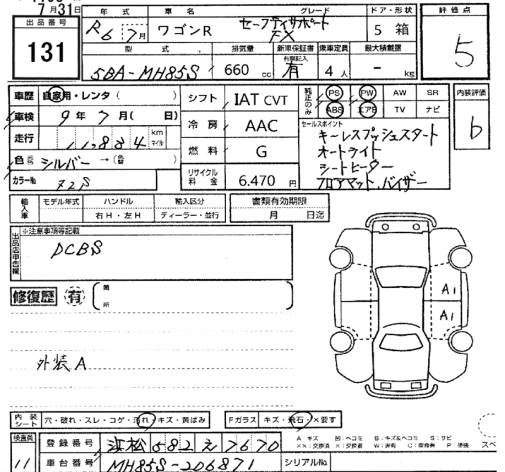 7月31日
出品番号
131
年式 車名 グレード ドア・形状
R6 7月 ワゴンR セーフティサポート FX 5 箱
型式 排気量 新車保証書 乗車定員 最大積載量
5BA-MH85S 660cc 有 4人 - kg
評価点
5
車歴 自家用・レンタ( )
車検 9年7月( 日)
走行 11,884 km マイル
色 シルバー → (色)
カラーNo Z2S
シフト IAT CVT
冷房 AAC
燃料 G
リサイクル料金 6,470円
純正のみ PS PW AW SR
ABS エアB TV ナビ
セールスポイント
キーレスプッシュスタート
オートライト
シートヒーター
フロアマット、バイザー
内装評価
b
輸入車 モデル年式 ハンドル 輸入区分 書類有効期限
右H・左H ディーラー・並行 月 日迄
※注意事項等記載
DCBS
修復歴 有 箇所
外装A
A1
A1
内装シート 穴・破れ・スレ・コゲ・汚れ・キズ・黄ばみ Fガラス キズ・飛石・×要す
検査員
11
登録番号 浜松582え7670
車台番号 MH85S-206871 シリアルNo
A キズ